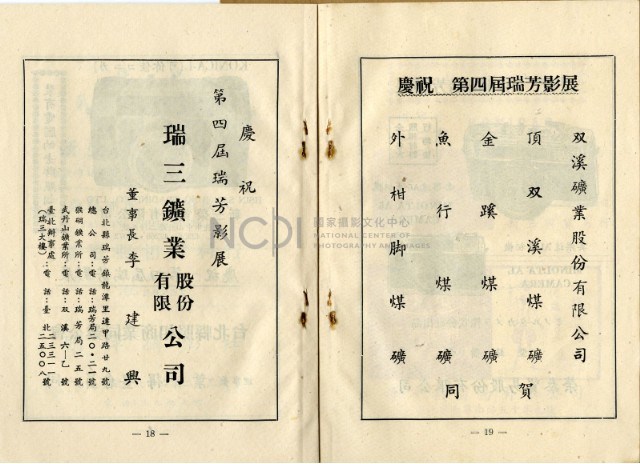 慶祝
第四屆瑞芳影展
瑞三鑛業股份有限公司
董事長 李建興
台北縣瑞芳鎮龍潭里逢甲路廿九號
總公司:電話:瑞芳局二〇・二一號
猴硐鑛業所:電話:瑞芳局二五號
武丹山鑛業所:電話:双溪六—乙號
臺北辦事處:電話:臺北二三三一一 二五〇〇八號
(瑞三大樓)
— 18 —
慶祝 第四屆瑞芳影展
双溪礦業股份有限公司
頂双溪煤礦
金蹊煤礦
魚行煤礦
外柑脚煤礦
同賀
— 19 —
NCPI
國家攝影文化中心
NATIONAL CENTER OF
PHOTOGRAPHY AND IMAGES